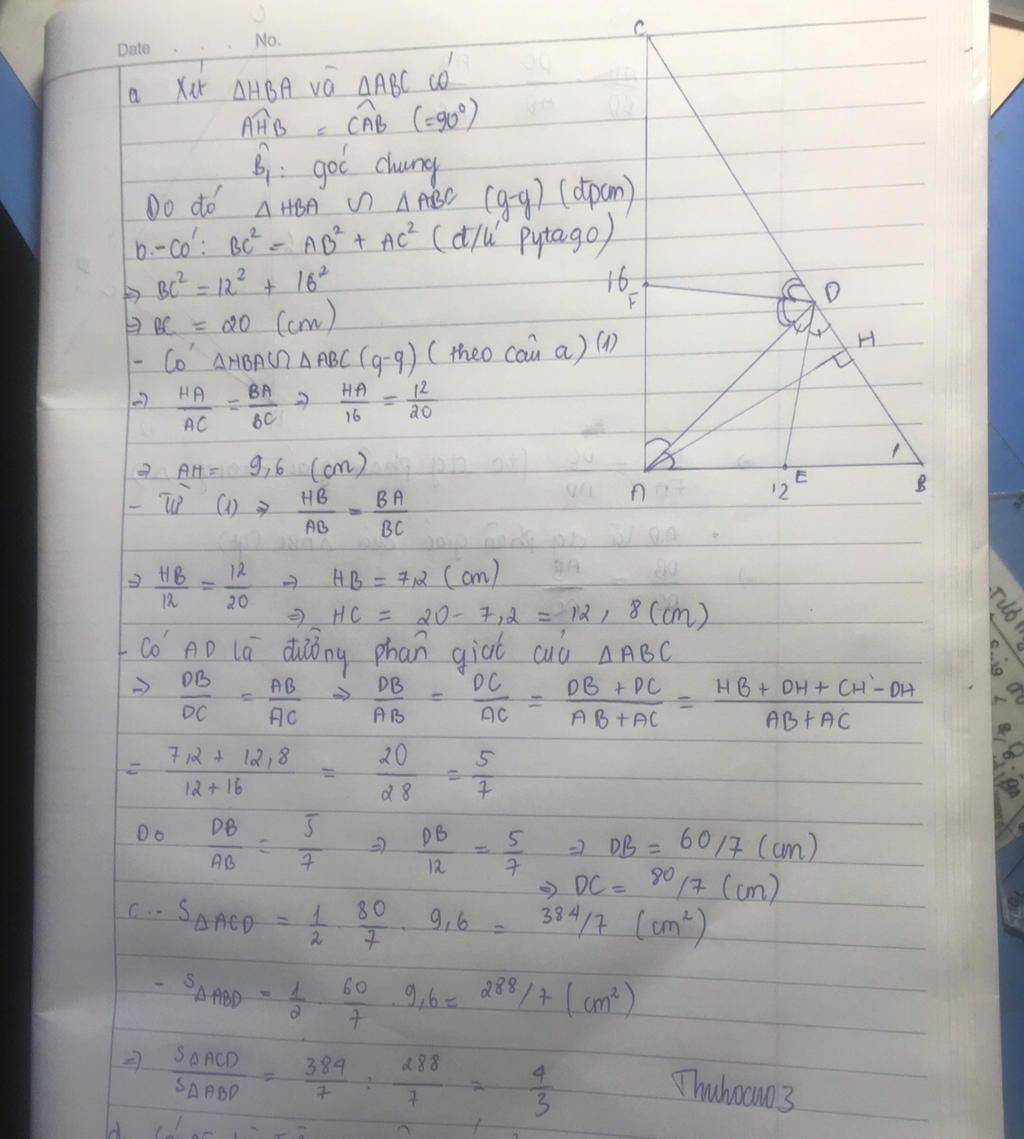 Date . . . No.
a Xét ΔHBA và ΔABC có
AHB = CAB (=90°)
B̂₁: góc chung
Do đó ΔHBA ∽ ΔABC (g-g) (đpcm)
b.-Có: BC² = AB² + AC² (đ/lí Pytago)
⇒ BC² = 12² + 16²
⇒ BC = 20 (cm)
- Có ΔHBA ∽ ΔABC (g-g) (theo câu a) (1)
⇒ HA/AC = BA/BC ⇒ HA/16 = 12/20
⇒ AH = 9,6 (cm)
- Từ (1) ⇒ HB/AB = BA/BC
⇒ HB/12 = 12/20 ⇒ HB = 7,2 (cm)
⇒ HC = 20 - 7,2 = 12,8 (cm)
- Có AD là đường phân giác của ΔABC
⇒ DB/DC = AB/AC ⇒ DB/AB = DC/AC = DB + DC/AB + AC = HB + DH + CH - DH/AB + AC
= 7,2 + 12,8/12 + 16 = 20/28 = 5/7
Do DB/AB = 5/7 ⇒ DB/12 = 5/7 ⇒ DB = 60/7 (cm)
⇒ DC = 80/7 (cm)
c.- SΔACD = 1/2 . 80/7 . 9,6 = 384/7 (cm²)
- SΔABD = 1/2 . 60/7 . 9,6 = 288/7 (cm²)
⇒ SΔACD/SΔABD = 384/7 : 288/7 = 4/3
Thuhocuo3
C
16
F
D
H
A
12
E
1
B